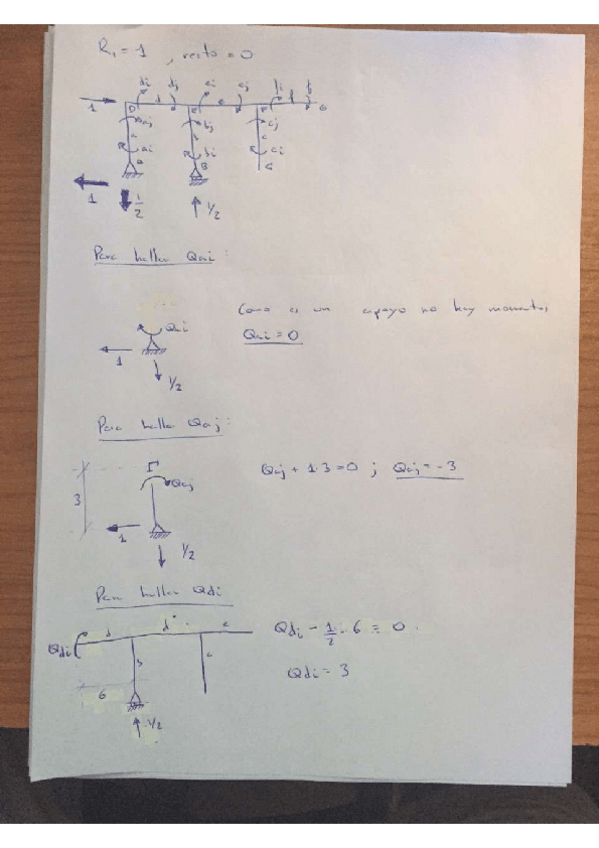 R₁ = 1 , resto = 0
di dj ei ej fi fj
d e f
1 D E F G
aj bj cj
a b c
ai bi ci
A B C
1 1/2 1/2
Para hallar Qai:
Como es un apoyo no hay momentos
Qai
Qai = 0
1
1/2
Para hallar Qaj:
Qaj + 1·3 = 0 ; Qaj = -3
Qaj
3
1
1/2
Para hallar Qdi
d
Qdi
Qdi - 1/2 · 6 = 0
b
6
Qdi = 3
1/2